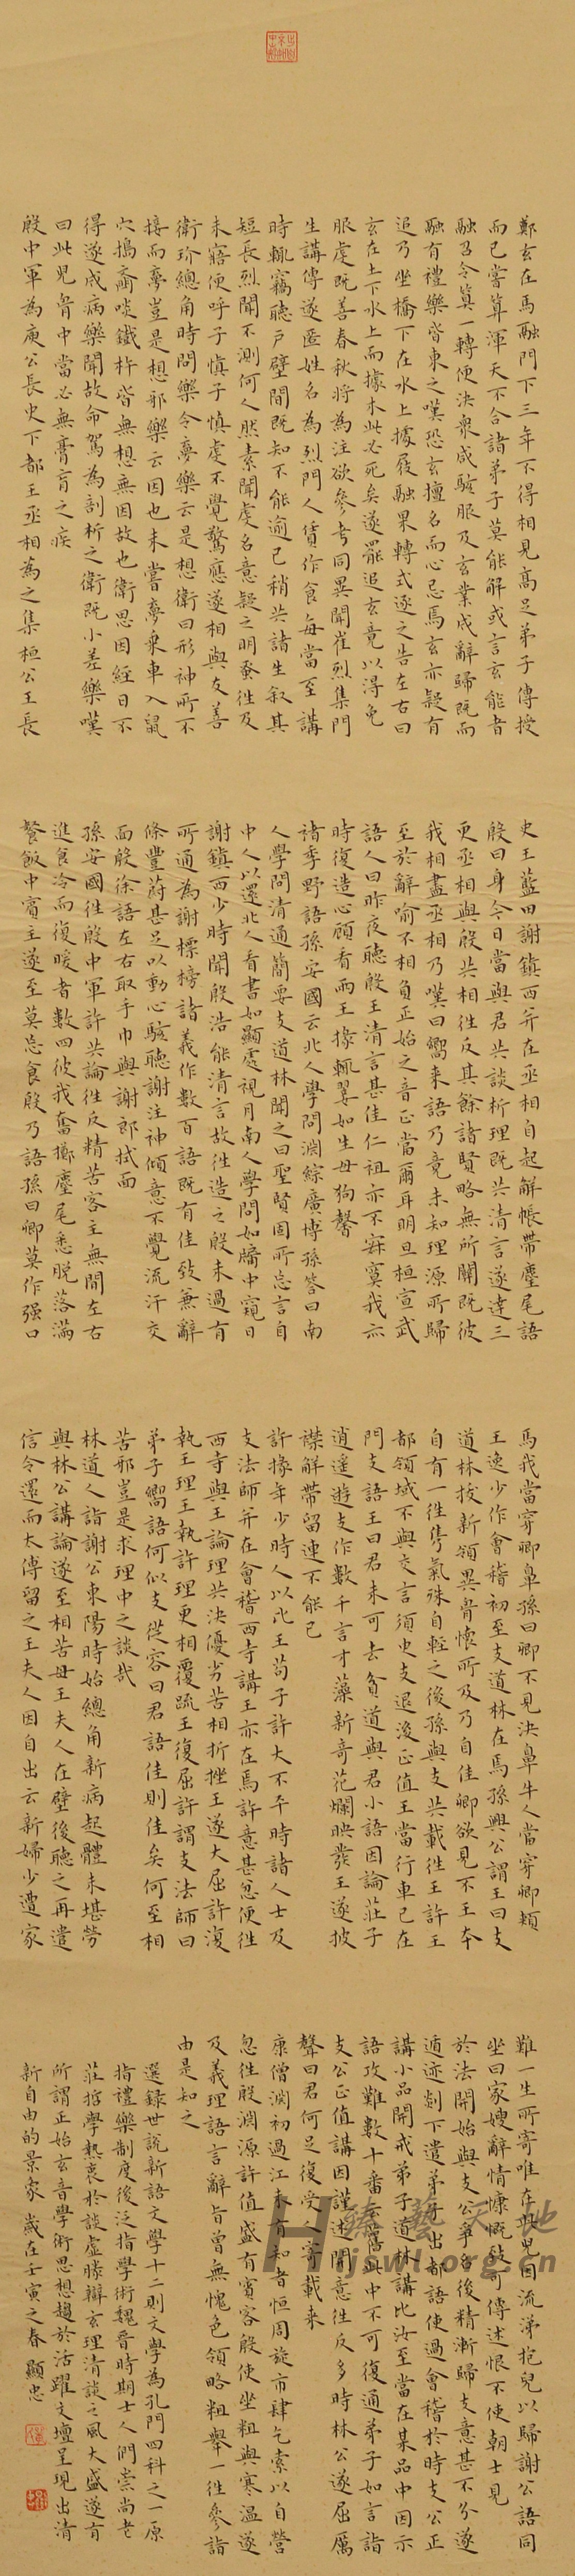 鄭玄在馬融門下三年不得相見高足弟子傳授
而已嘗算渾天不合諸弟子莫能解或言玄能者
融召令算一轉便決衆咸駭服及玄業成辭歸既而
融有禮樂皆東之嘆恐玄擅名而心忌焉玄亦疑有
追乃坐橋下在水上據屐融果轉式逐之告左右曰
玄在土下水上而據木此必死矣遂罷追玄竟以得免
服虔既善春秋將為注欲參考同異聞崔烈集門
生講傳遂匿姓名為烈門人賃作食每當至講
時輒竊聽户壁間既知不能逾己稍共諸生叙其
短長烈聞不測何人然素聞虔名意疑之明蚤往及
未寤便呼子慎子慎虔不覺驚應遂相與友善
衛玠總角時問樂令夢樂云是想衛曰形神所不
接而夢豈是想邪樂云因也未嘗夢乘車入鼠
穴搗齏啖鐵杵皆無想無因故也衛思因經日不
得遂成病樂聞故命駕為剖析之衛既小差樂嘆
曰此兒胷中當必無膏肓之疾
殷中軍為庾公長史下都王丞相為之集桓公王長
史王藍田謝鎮西并在丞相自起解帳帶麈尾語
殷曰身今日當與君共談析理既共清言遂達三
更丞相與殷共相往反其餘諸賢略無所關既彼
我相盡丞相乃嘆曰嚮来語乃竟未知理源所歸
至於辭喻不相負正始之音正當爾耳明旦桓宣武
語人曰昨夜聽殷王清言甚佳仁祖亦不寂寞我亦
時復造心顧看兩王掾輒翣如生母狗馨
褚季野語孫安國云北人學問淵綜廣博孫答曰南
人學問清通簡要支道林聞之曰聖賢固所忘言自
中人以還北人看書如顯處視月南人學問如牖中窺日
謝鎮西少時聞殷浩能清言故往造之殷未過有
所通為謝標榜諸義作數百語既有佳致兼辭
條豐蔚甚足以動心駭聽謝注神傾意不覺流汗交
面殷徐語左右取手巾與謝郎拭面
孫安國往殷中軍許共論往反精苦客主無間左右
進食冷而復暖者數四彼我奮擲麈尾悉脱落滿
餐飯中賓主遂至莫忘食殷乃語孫曰卿莫作强口
馬我當穿卿鼻孫曰卿不見決鼻牛人當穿卿頰
王逸少作會稽初至支道林在焉孫興公謂王曰支
道林拔新領異胷懷所及乃自佳卿欲見不王本
自有一往隽氣殊自輕之後孫與支共載往王許王
都領域不與交言須臾支退後正值王當行車已在
門支語王曰君未可去貧道與君小語因論莊子
逍遥遊支作數千言才藻新奇花爛映發王遂披
襟解帶留連不能已
許掾年少時人以比王苟子許大不平時諸人士及
支法師并在會稽西寺講王亦在焉許意甚忿便往
西寺與王論理共決優劣苦相折挫王遂大屈許復
執王理王執許理更相覆疏王復屈許謂支法師曰
弟子嚮語何似支從容曰君語佳則佳矣何至相
苦邪豈是求理中之談哉
林道人詣謝公東陽時始總角新病起體未堪勞
與林公講論遂至相苦母王夫人在壁後聽之再遣
信令還而太傅留之王夫人因自出云新婦少遭家
難一生所寄唯在此兒因流涕抱兒以歸謝公語同
坐曰家嫂辭情慷慨致可傳述恨不使朝士見
於法開始與支公爭名後精漸歸支意甚不分遂
遁迹剡下遣弟子出都語使過會稽於時支公正
講小品開戒弟子道林講比汝至當在某品中因示
語攻難數十番云舊此中不可復通弟子如言詣
支公正值講因謹述開意往反多時林公遂屈厲
聲曰君何足復受人寄載来
康僧淵初過江未有知者恒周旋市肆乞索以自營
忽往殷淵源許值盛有賓客殷使坐粗與寒温遂
及義理語言辭旨曾無愧色領略粗舉一往參詣
由是知之
選録世説新語文學十二則文學為孔門四科之一原
指禮樂制度後泛指學術魏晉時期士人們崇尚老
莊哲學熱衷於談虚勝辯玄理清談之風大盛遂有
所謂正始玄音學術思想趨於活躍文壇呈現出清
新自由的景象 歲在壬寅之春 顯忠
臻藝天地
Hjswl.org.cn